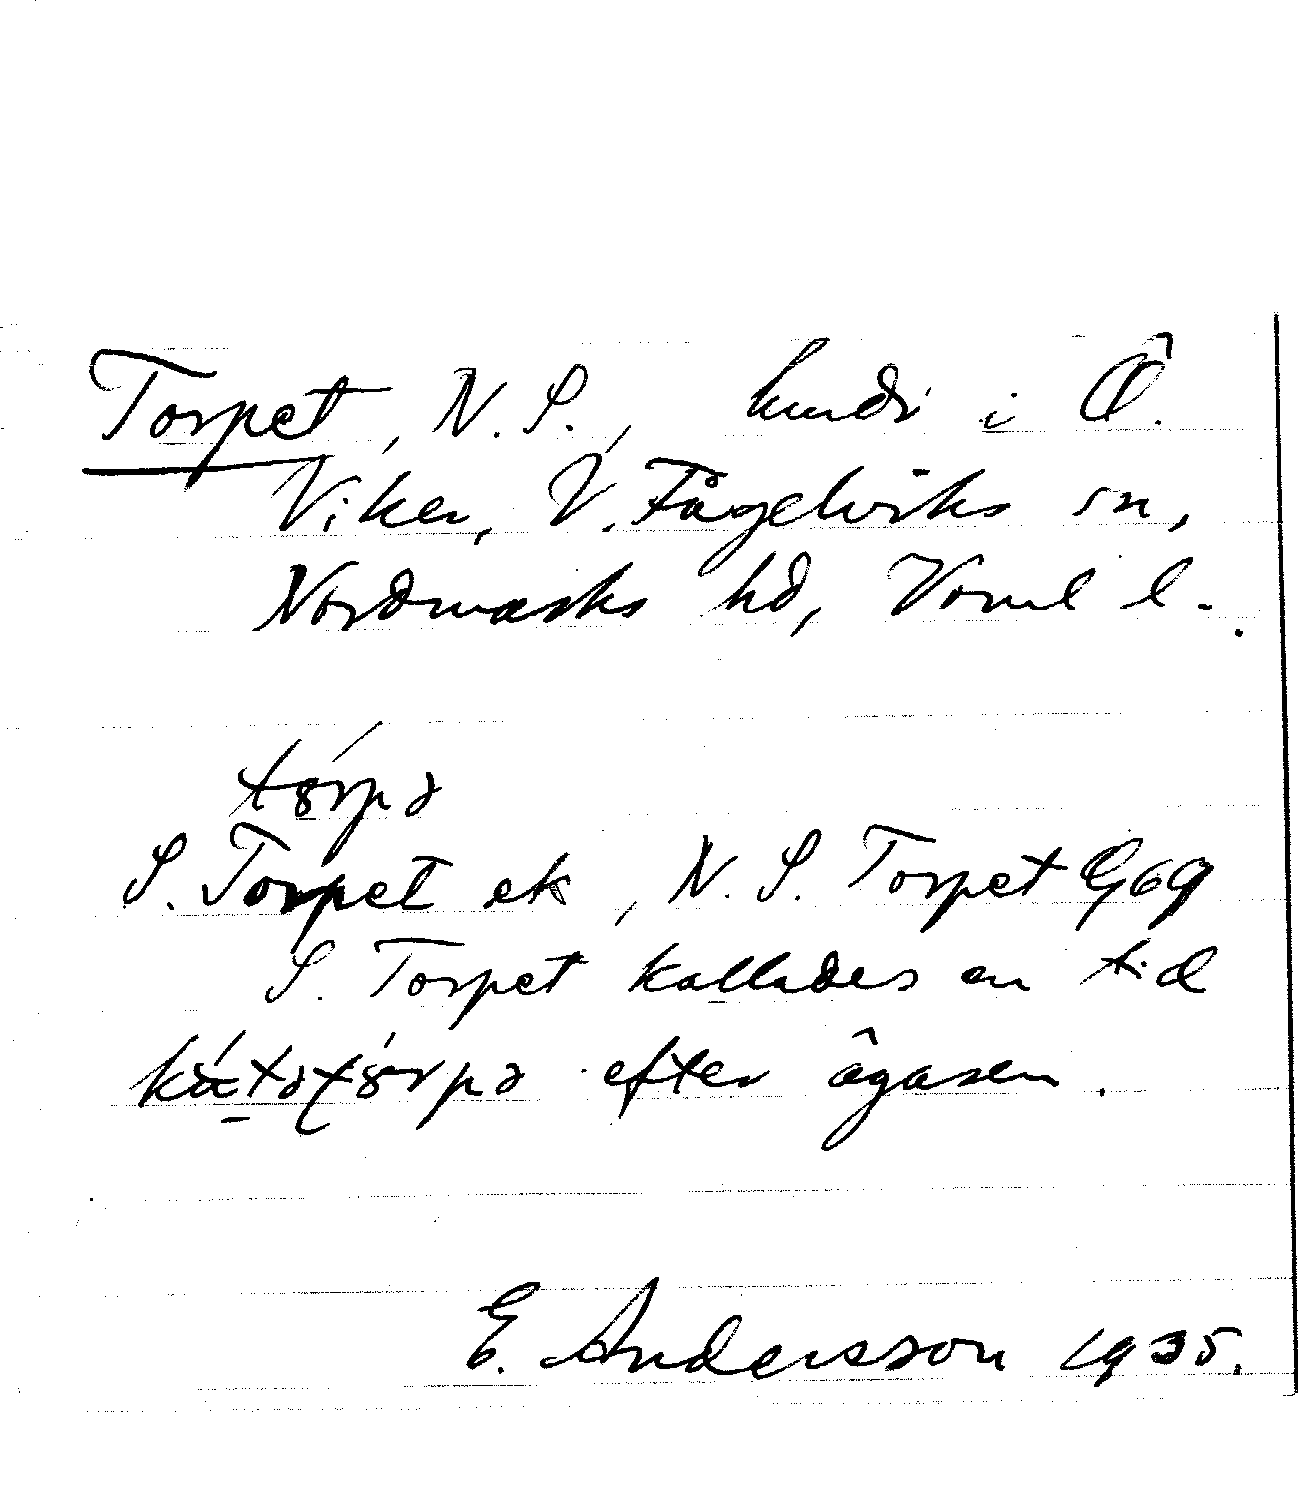 Torpet, N. S., hmdr i Ö.
Viker, V. Fågelviks sn,
Nordmarks hd, Värml l.
tørpə
S. Torpet ek, N. S. Torpet G69
S. Torpet kallades en tid
efter ägaren.
E. Andersson 1935.